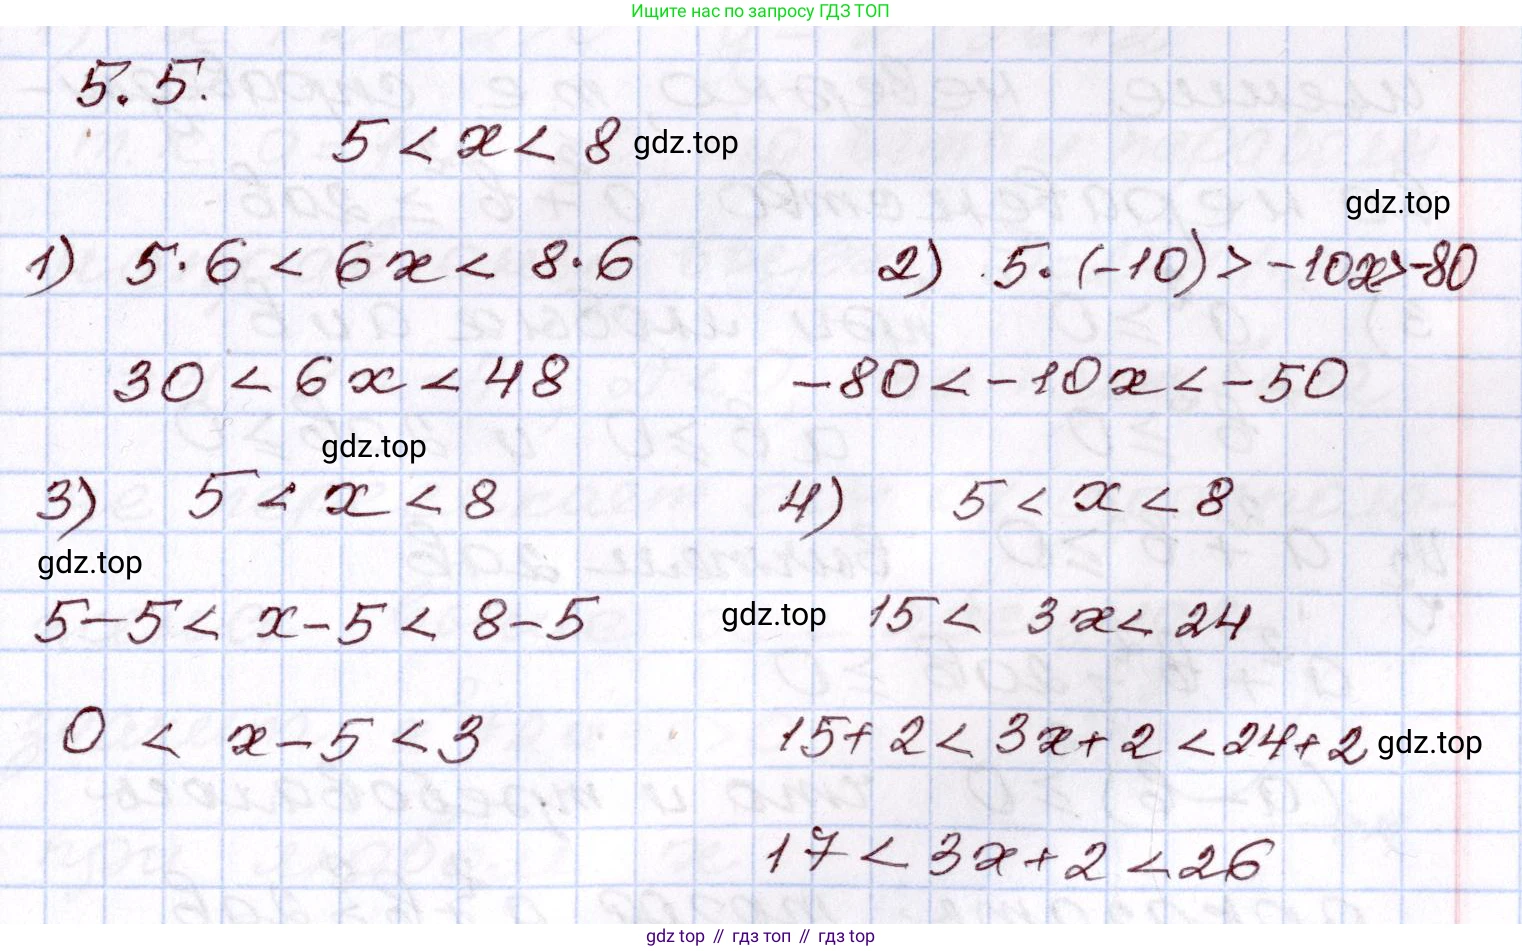 Ищите нас по запросу ГДЗ ТОП
5.5.
5 < x < 8 gdz.top
gdz.top
1) 5·6 < 6x < 8·6
2) 5·(-10) > -10x > -80
30 < 6x < 48
-80 < -10x < -50
gdz.top
3) 5 < x < 8
4) 5 < x < 8
gdz.top
5-5 < x-5 < 8-5
gdz.top 15 < 3x < 24
0 < x-5 < 3
15+2 < 3x+2 < 24+2 gdz.top
17 < 3x+2 < 26
gdz top // гдз топ // гдз top